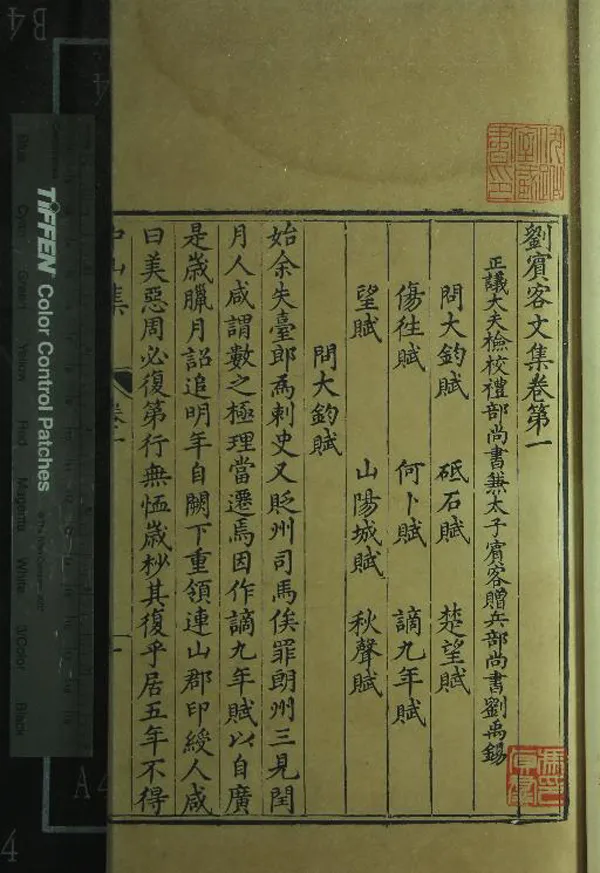 劉賓客文集卷第一
正議大夫檢校禮部尚書兼太子賓客贈兵部尚書劉禹錫
問大鈞賦 砥石賦 楚望賦
傷往賦 何卜賦 謫九年賦
望賦 山陽城賦 秋聲賦
問大鈞賦
始余失臺郎為刺史又貶州司馬俟罪朗州三見閏
月人咸謂數之極理當遷焉因作謫九年賦以自廣
是歲臘月詔追明年自闕下重領連山郡印綬人咸
曰美惡周必復第行無恤歲杪其復乎居五年不得
中山集 卷一 一
TIFFEN Color Control Patches
Blue
Cyan
Green
Yellow
Red
Magenta
White
3/Color
Black
B4
A4